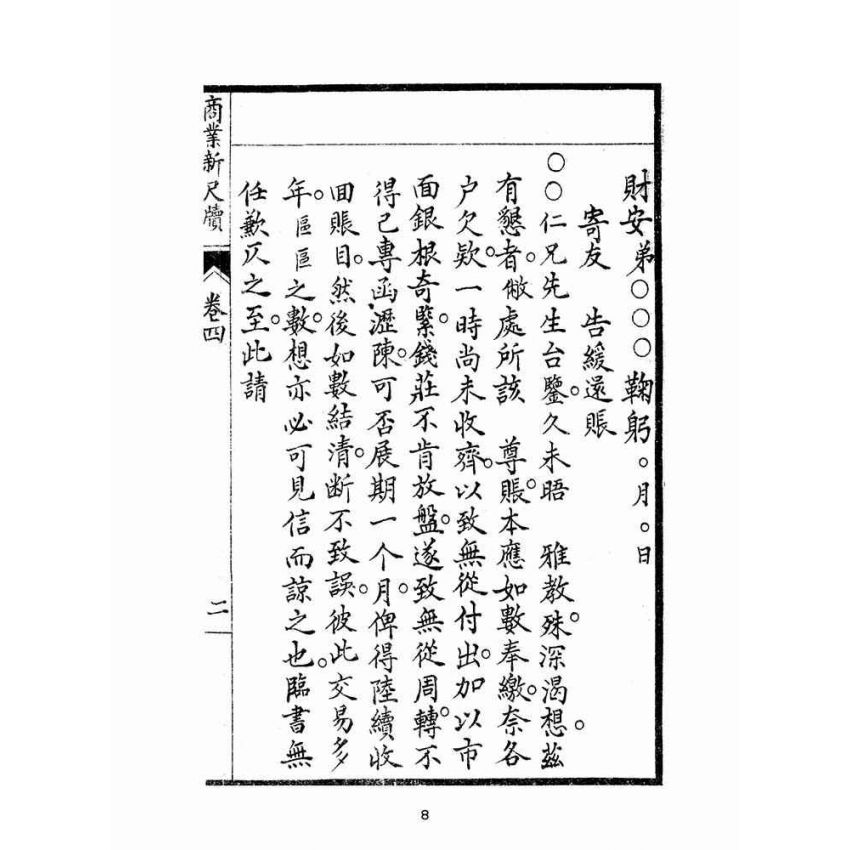 財安弟○○○鞠躬。月。日
寄友 告緩還賬
○○仁兄先生台鑒。久未晤 雅教。殊深渴想。茲
有懇者。敝處所該 尊賬。本應如數奉繳。奈各
户欠欵。一時尚未收齊。以致無從付出。加以市
面銀根奇緊。錢莊不肯放盤。遂致無從周轉。不
得已專函瀝陳。可否展期一个月。俾得陸續收
囬賬目。然後如數結清。断不致誤。彼此交易多
年。區區之數。想亦必可見信而諒之也。臨書無
任歉仄之至。此請
商業新尺牘
卷四
二
8